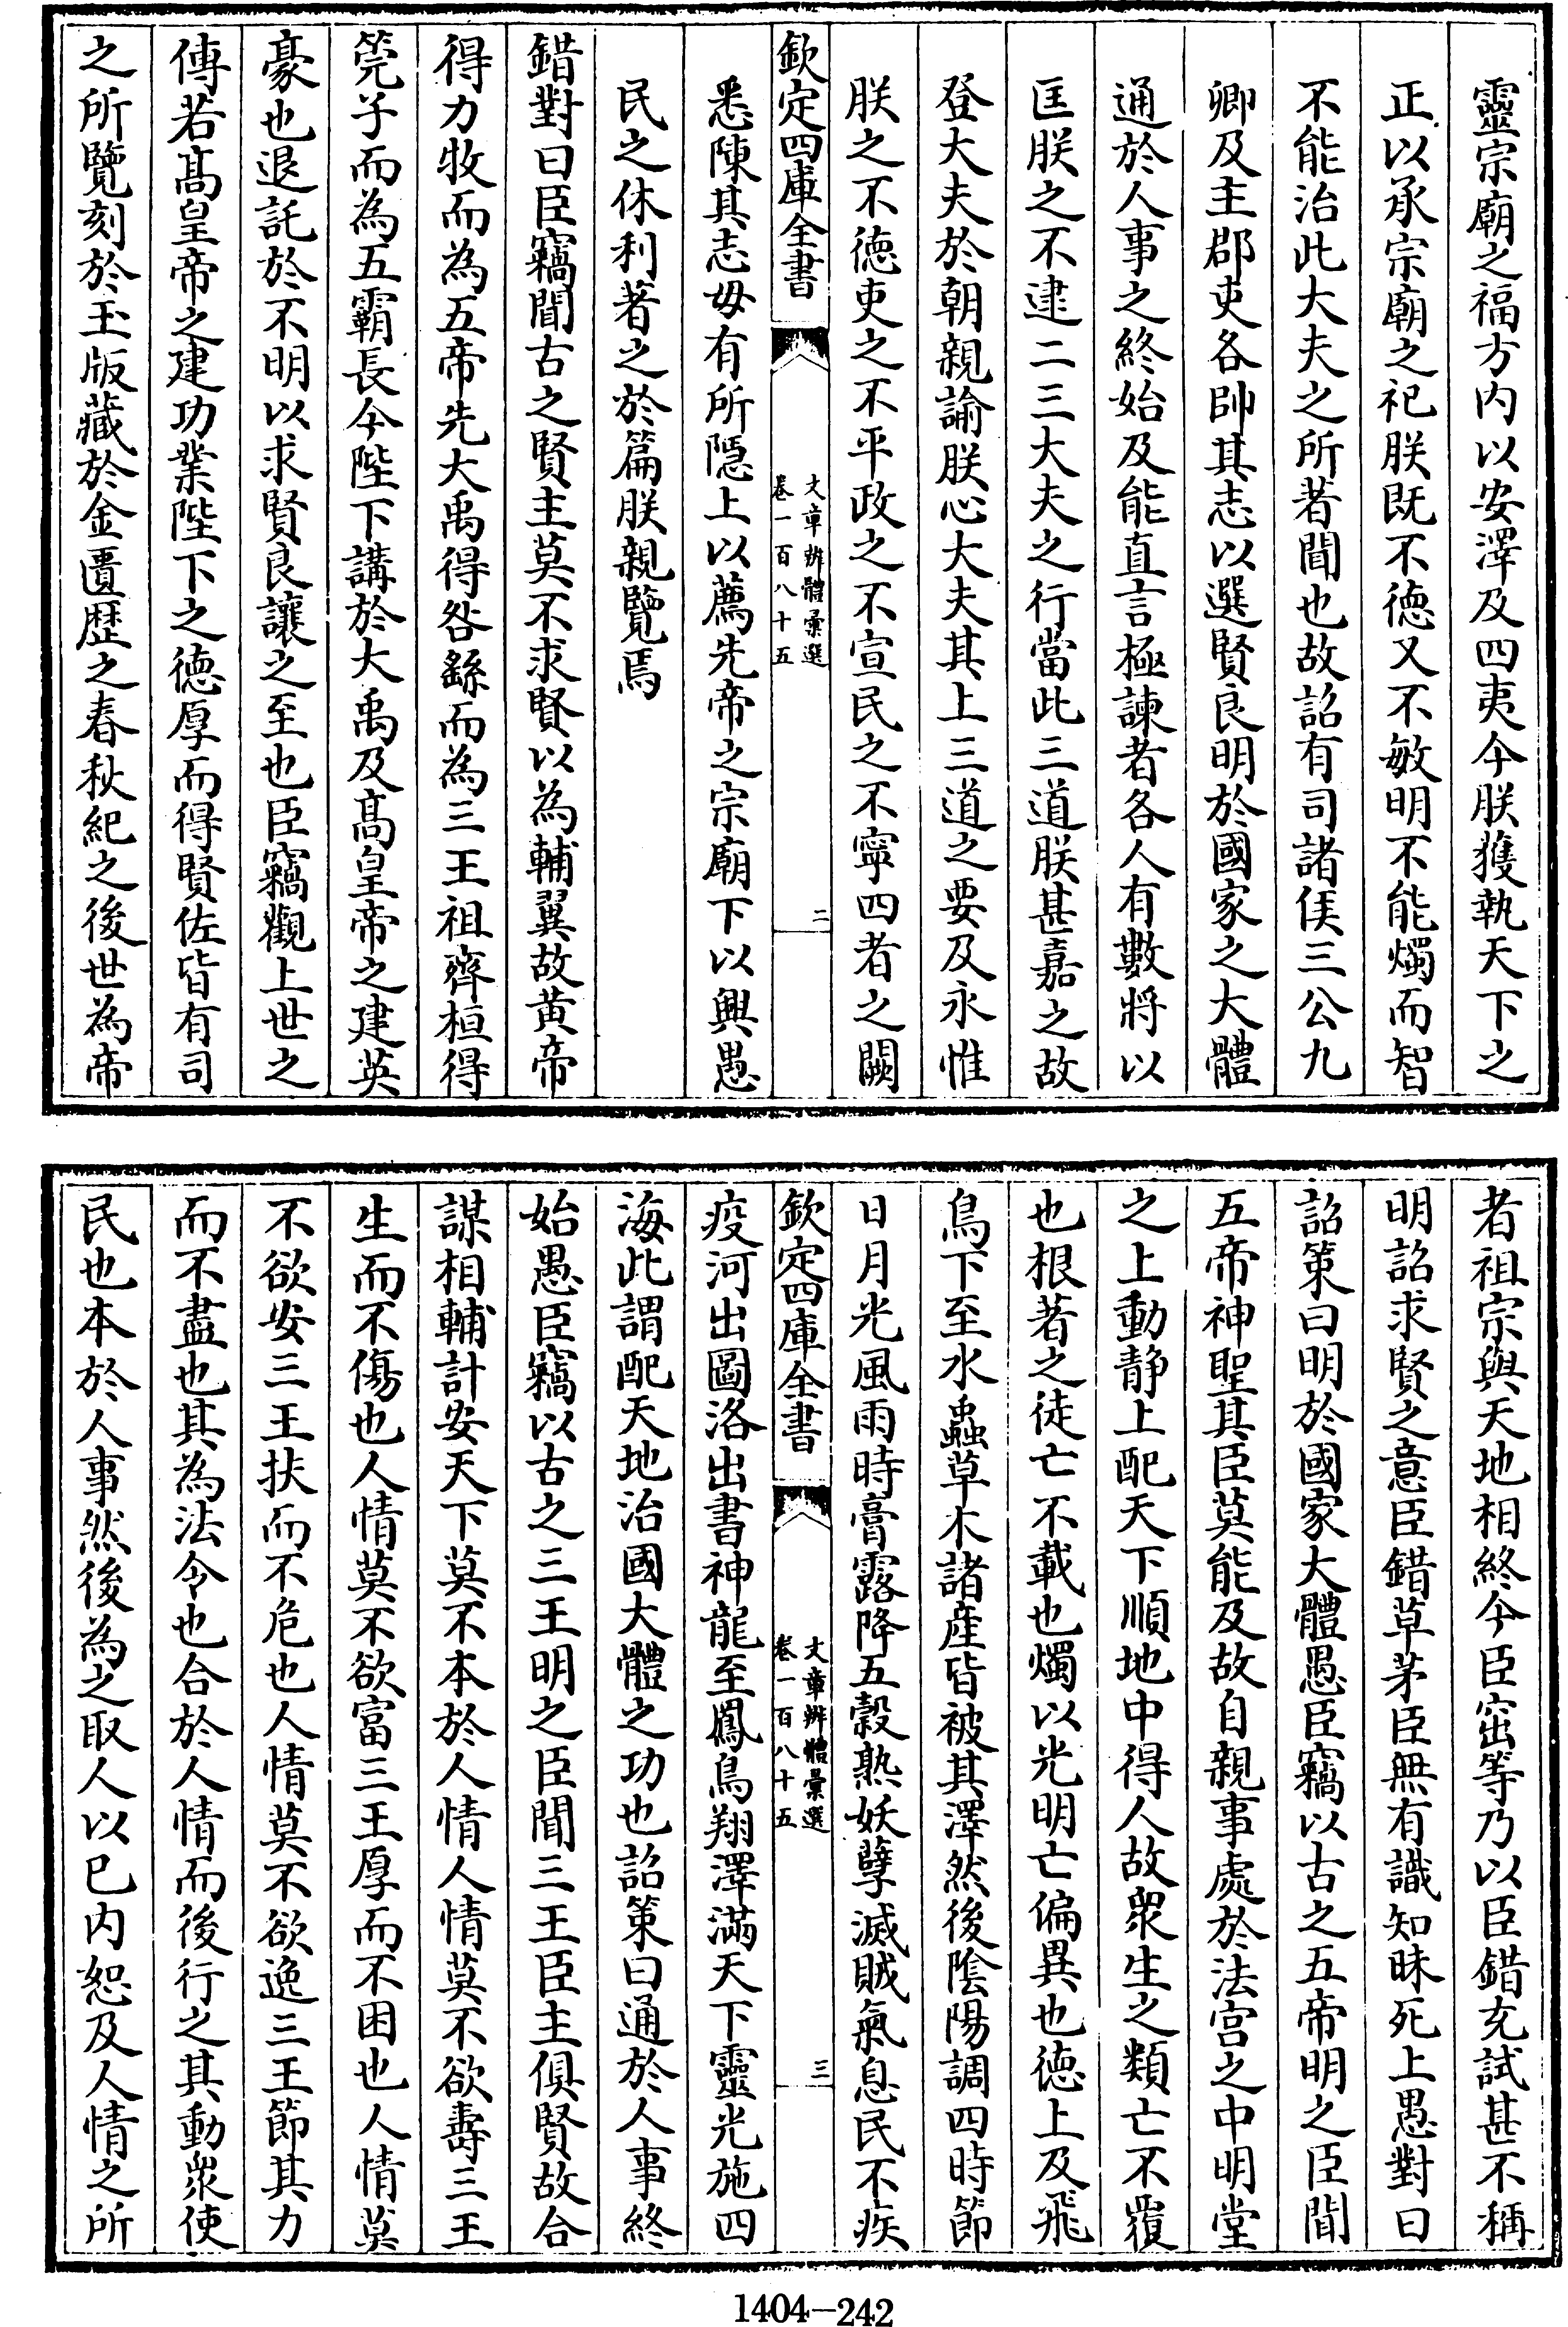 靈宗廟之福方内以安澤及四夷今朕獲執天下之
正以承宗廟之祀朕既不徳又不敏明不能燭而智
不能治此大夫之所著聞也故詔有司諸侯三公九
卿及主郡吏各帥其志以選賢良明於國家之大體
通於人事之終始及能直言極諫者各人有數將以
匡朕之不逮二三大夫之行當此三道朕甚嘉之故
登大夫於朝親諭朕心大夫其上三道之要及永惟
朕之不徳吏之不平政之不宣民之不寧四者之闕
欽定四庫全書
文章辨體彙選
卷一百八十五
二
悉陳其志毋有所隠上以薦先帝之宗廟下以興愚
民之休利著之於篇朕親覽焉
錯對曰臣竊聞古之賢主莫不求賢以為輔翼故黄帝
得力牧而為五帝先大禹得咎繇而為三王祖齊桓得
筦子而為五霸長今陛下講於大禹及髙皇帝之建英
豪也退託於不明以求賢良讓之至也臣竊觀上世之
傳若髙皇帝之建功業陛下之徳厚而得賢佐皆有司
之所覽刻於玉版藏於金匱歴之春秋紀之後世為帝
者祖宗與天地相終今臣窋等乃以臣錯充試甚不稱
明詔求賢之意臣錯草茅臣無有識知昧死上愚對曰
詔策曰明於國家大體愚臣竊以古之五帝明之臣聞
五帝神聖其臣莫能及故自親事處於法宫之中明堂
之上動静上配天下順地中得人故衆生之類亡不覆
也根著之徒亡不載也燭以光明亡偏異也徳上及飛
鳥下至水蟲草木諸産皆被其澤然後隂陽調四時節
日月光風雨時膏露降五穀熟妖孽滅賊氣息民不疾
欽定四庫全書
文章辨體彙選
卷一百八十五
三
疫河出圖洛出書神龍至鳳鳥翔澤滿天下靈光施四
海此謂配天地治國大體之功也詔策曰通於人事終
始愚臣竊以古之三王明之臣聞三王臣主俱賢故合
謀相輔計安天下莫不本於人情人情莫不欲夀三王
生而不傷也人情莫不欲富三王厚而不困也人情莫
不欲安三王扶而不危也人情莫不欲逸三王節其力
而不盡也其為法令也合於人情而後行之其動衆使
民也本於人事然後為之取人以已内恕及人情之所
1404-242